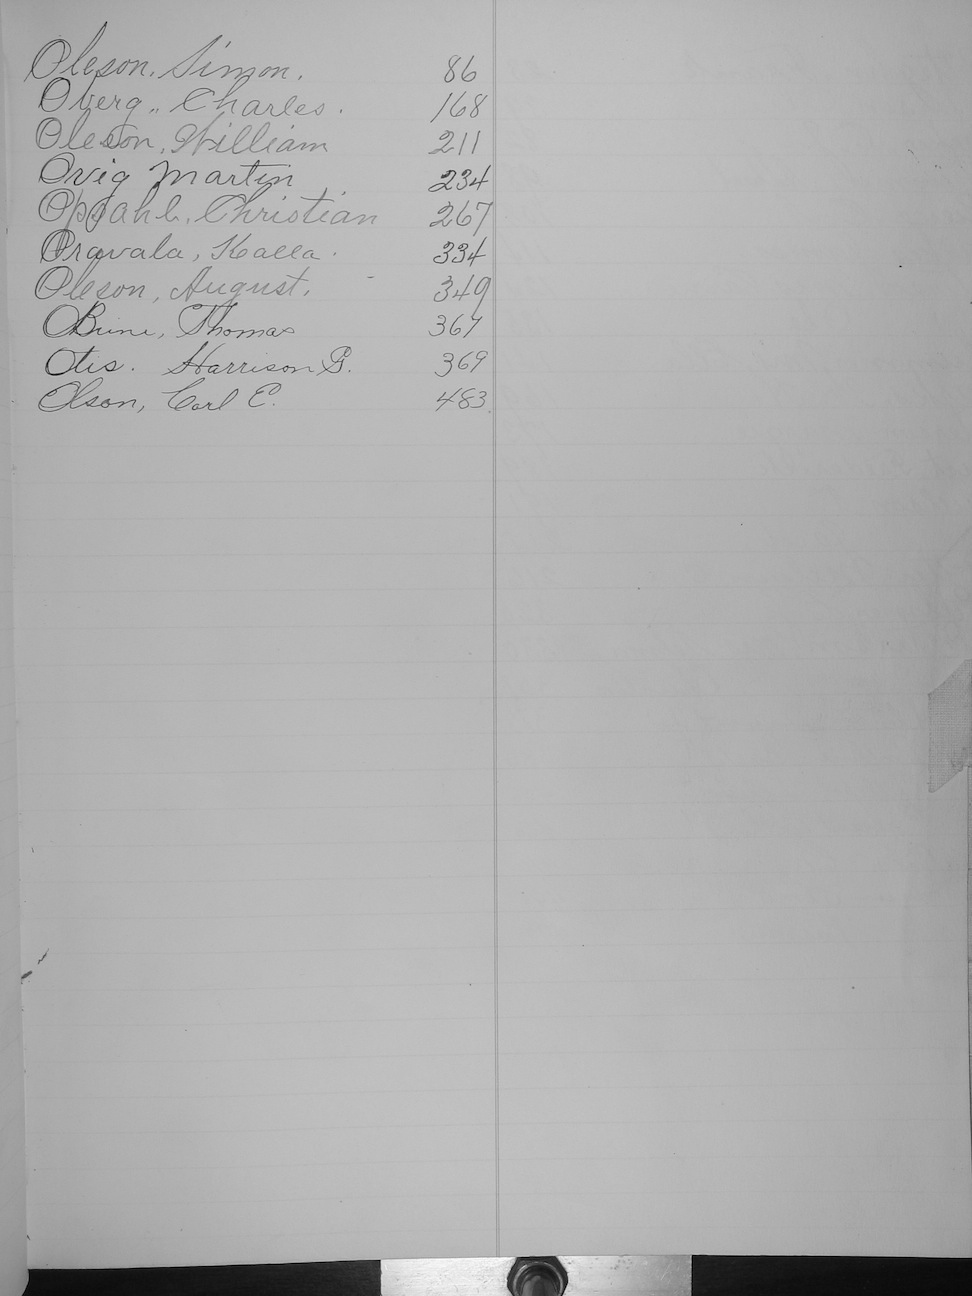 Oleson, Simon. 86
Oberg, Charles. 168
Oleson, William 211
Ovig Martin 234
Opsahl, Christian 267
Oravala, Kalla. 334
Oleson, August. 349
Thomas 367
Otis. Harrison G. 369
Olson, Carl E. 483